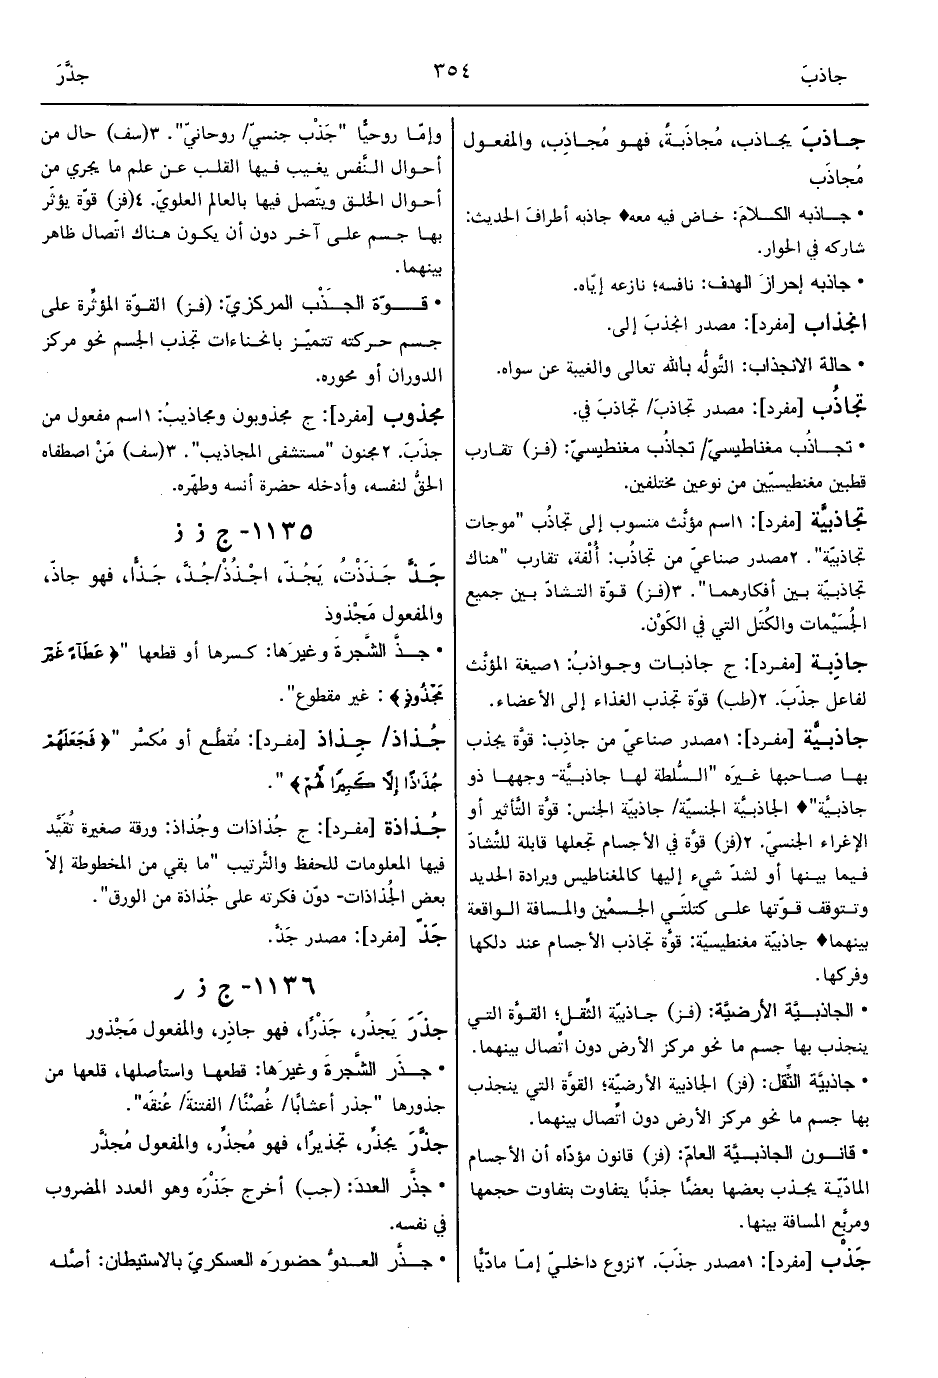 جاذبَ
٣٥٤
جذَّرَ
جــاذبَ يجـاذب، مُجاذَبـةً، فهـو مُجـاذِب، والمفعـول
مُجاذَب
• جـــاذبه الكـــلامَ: خـاض فيه معه♦ جاذبه أطرافَ الحديث:
شاركه في الحوار.
• جاذبه إحرازَ الهدف: نافسه؛ نازعه إيّاه.
انجذاب [مفرد]: مصدر انجذبَ إلى.
• حالة الانجذاب: التَّولُّه بالله تعالى والغيبة عن سواه.
تجاذُب [مفرد]: مصدر تجاذبَ/ تجاذبَ في.
• تجـــاذُب مغناطيسيّ/ تجاذُب مغنطيسيّ: (فـز) تقـارب
قطبين مغنطيسيّين من نوعين مختلفين.
تجاذبيَّة [مفرد]: ١اسم مؤنَّث منسوب إلى تجاذُب "موجات
تجاذبيّة". ٢مصدر صناعيّ من تجاذُب: أُلْفة، تقارب "هناك
تجاذبيّة بـين أفكارهمـا". ٣(فـز) قـوّة التـشادّ بـين جميع
الجُسَيْمات والكُتَل التي في الكَوْن.
جاذِبـة [مفـرد]: ج جاذبـات وجـواذبُ: ١صيغة المؤنَّث
لفاعل جذَبَ. ٢(طب) قوّة تجذب الغذاء إلى الأعضاء.
جاذبـيَّة [مفـرد]: ١مصدر صناعيّ من جاذِب: قوَّة يجذب
بهـا صـاحبها غـيرَه "الـسُّلطة لهـا جاذبـيَّة- وجههـا ذو
جاذبيَّة"♦ الجاذبيَّة الجنسيَّة/ جاذبيّة الجنس: قوَّة التَّأثير أو
الإغراء الجنسيّ. ٢(فز) قوَّة في الأجسام تجعلها قابلة للتَّشادّ
فـيما بيـنها أو لـشدّ شيء إليها كالمغناطيس وبرادة الحديد
وتـتوقف قـوّتها علـى كتلتَي الجـسمْين والمسافة الواقعة
بينهما♦ جاذبيّة مغنطيسيّة: قوَّة تجاذب الأجسام عند دلكها
وفركها.
• الجاذبـيَّة الأرضيَّة: (فـز) جـاذبيّة الثِّقل؛ القوَّة التي
ينجذب بها جسم ما نحو مركز الأرض دون اتّصال بينهما.
• جاذبيَّة الثِّقل: (فز) الجاذبية الأرضيّة؛ القوَّة التي ينجذب
بها جسم ما نحو مركز الأرض دون اتّصال بينهما.
• قانـون الجاذبـيَّة العامّ: (فز) قانون مؤدّاه أن الأجسام
المادّيّـة يجـذب بعضها بعضًا جذبًا يتفاوت بتفاوت حجمها
ومربَّع المسافة بينها.
جَذْب [مفرد]: ١مصدر جذَبَ. ٢نزوع داخلـيّ إمّـا مادّيًّا
وإمّـا روحيًّا "جَذْب جنسيّ/ روحانيّ". ٣(سف) حال من
أحـوال الـنَّفس يغـيب فـيها القلـب عـن علـم ما يجري من
أحـوال الخلـق ويتّصل فيها بالعالم العلويّ. ٤(فز) قوّة يؤثّر
بهـا جسم علـى آخـر دون أن يكـون هـناك اتّصال ظاهر
بينهما.
• قـــوّة الجـــذْب المركزيّ: (فـز) القـوّة المؤثِّرة على
جـسم حـركته تتميّـز بانحـناءات تجذب الجسم نحو مركز
الدوران أو محوره.
مجذوب [مفرد]: ج مجذوبون ومجاذيبُ: ١اسم مفعول من
جذَبَ. ٢مجنون "مستشفى المجاذيب". ٣(سف) مَنْ اصطفاه
الحقُّ لنفسه، وأدخله حضرة أنسه وطهّره.
١١٣٥- ج ذ ذ
جَذَّ جَذَذْتُ، يَجُذّ، اجْذُذْ/جُذَّ، جَذًّا، فهو جاذّ،
والمفعول مَجْذوذ
• جـذَّ الشَّجرةَ وغيرَها: كسرها أو قطعها "﴿ عَطَآءً غَيْرَ
مَجْذُوذٍ﴾ : غير مقطوع".
جُـذاذ/ جِـذاذ [مفـرد]: مُقطَّـع أو مُكسَّر "﴿ فَجَعَلَهُمْ
جُذَاذًا إِلَّا كَبِيرًا لَّهُمْ﴾ ".
جُـذاذة [مفرد]: ج جُذاذات وجُذاذ: ورقة صغيرة تُقيَّد
فيها المعلومات للحفظ والتَّرتيب "ما بقي من المخطوطة إلاّ
بعض الجُذاذات- دوّن فكرته على جُذاذة من الورق".
جَذّ [مفرد]: مصدر جَذَّ.
١١٣٦- ج ذ ر
جذَرَ يَجذُر، جَذْرًا، فهو جاذِر، والمفعول مَجْذور
• جـذَر الشَّجرةَ وغيرَها: قطعهـا واستأصلها، قلعها من
جذورها "جذر أعشابًا/ غُصْنًا/ الفتنةَ/ عُنقَه".
جذَّرَ يجذِّر، تجذيرًا، فهو مُجذِّر، والمفعول مُجذَّر
• جذَّر العددَ: (جب) أخرج جَذْرَه وهو العدد المضروب
في نفسه.
• جـذَّر العـدوُّ حضورَه العسكريّ بالاستيطان: أصَّلـه